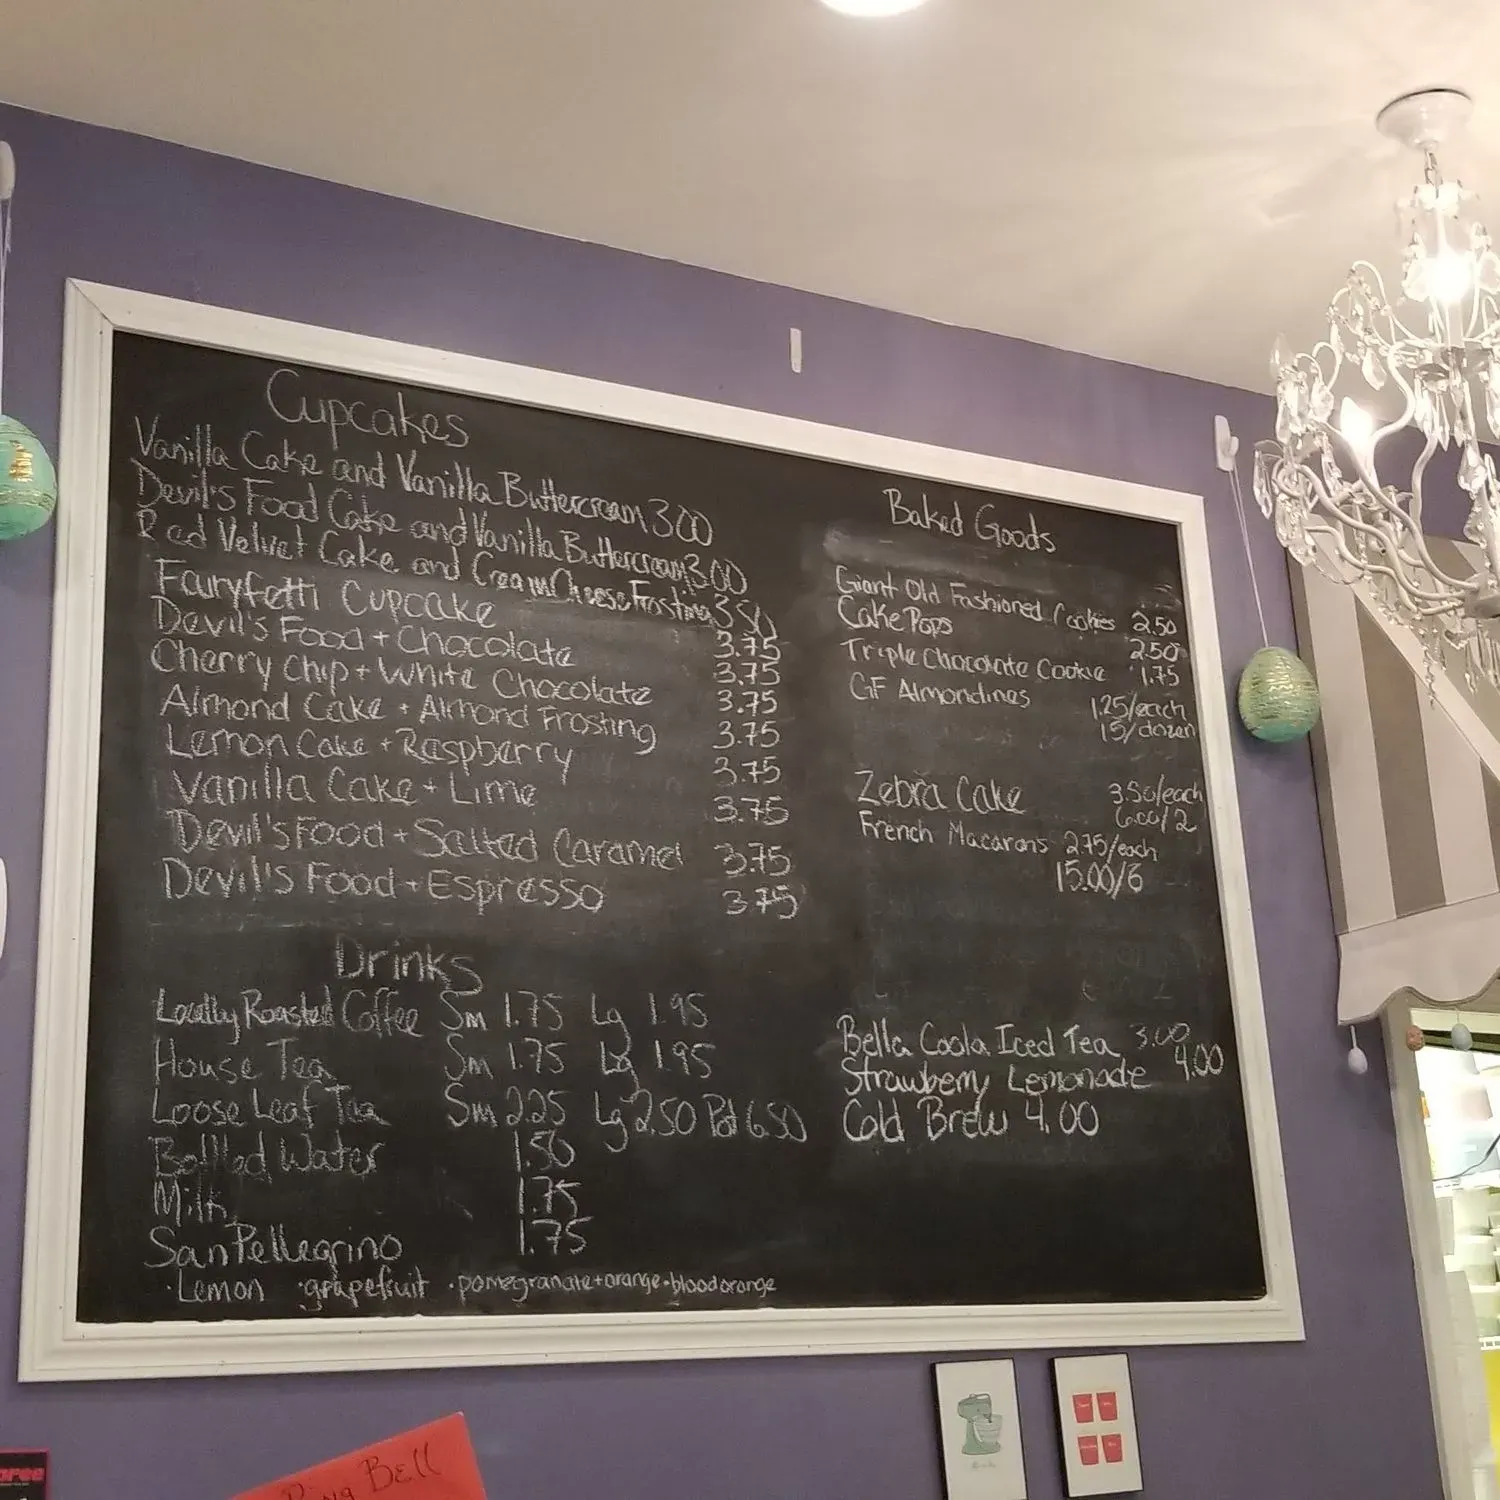 Cupcakes
Vanilla Cake and Vanilla Buttercream 3.00
Devil's Food Cake and Vanilla Buttercream 3.00
Red Velvet Cake and Cream Cheese Frosting 3.50
Fairyfetti Cupcake 3.75
Devil's Food + Chocolate 3.75
Cherry Chip + White Chocolate 3.75
Almond Cake + Almond Frosting 3.75
Lemon Cake + Raspberry 3.75
Vanilla Cake + Lime 3.75
Devil's Food + Salted Caramel 3.75
Devil's Food + Espresso 3.75
Drinks
Locally Roasted Coffee Sm 1.75 Lg 1.95
House Tea Sm 1.75 Lg 1.95
Loose Leaf Tea Sm 2.25 Lg 2.50 Pot 6.50
Bottled Water 1.50
Milk 1.75
San Pellegrino 1.75
·Lemon ·grapefruit ·pomegranate+orange·blood orange
Baked Goods
Giant Old Fashioned Cookies 2.50
Cake Pops 2.50
Triple Chocolate Cookie 1.75
GF Almondines 1.25/each
15/dozen
Zebra Cake 3.50/each
6.00/2
French Macarons 2.75/each
15.00/6
Bella Coola Iced Tea 3.00
Strawberry Lemonade 4.00
Cold Brew 4.00
Ring Bell